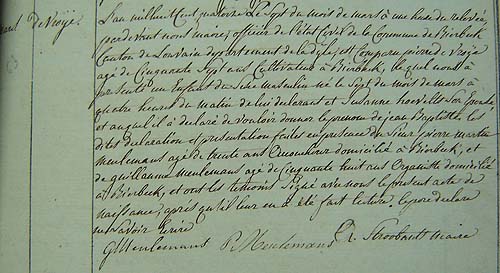 L'an mil huit Cent quatorze Le Sept du mois de mars à une heure de relevée
pardevant nous maire officier de l'état Civil de la Commune de Bierbeek
Canton de Louvain departement de la dyle, est Comparu pierre de
agé de Cinquante Sept ans Cultivateur à Bierbeek, lequel nous a
presenté un Enfant du Sexe masculin né le Sept du mois de mars à
quatre heures du matin de lui declarant et Susanne Son Epouse
et auquel il a déclaré de vouloir donner le prenom de jean Baptiste, les
dites declaration et presentation faites en presence de Sieur pierre martin
meulemans agé de trente ans domicilié à Bierbeek, et
de guillaume meulemans agé de cinquante huit ans Organiste domicilié
à Bierbeek, et ont les temoins Signé avec nous le present acte de
naissance, après qu'il leur en a été fait lecture, le pere declare
ne Savoir Ecrire
G Meulemans P. Meulemans Stroobant maire